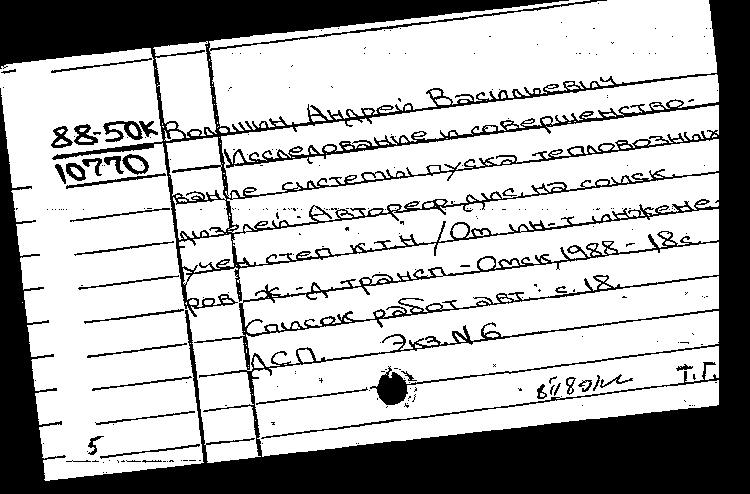 88-50К
10770
Волошин, Андрей Васильевич.
Исследование и совершенство-
вание системы пуска тепловозных
дизелей: Автореф. дис. на соиск.
учен. степ. к.т.н. / Ом. ин-т инжене-
ров ж.-д. трансп. - Омск, 1988 - 18 с.
Список работ авт.: с. 18.
ДСП. Экз. N 6
Т.Г.
5